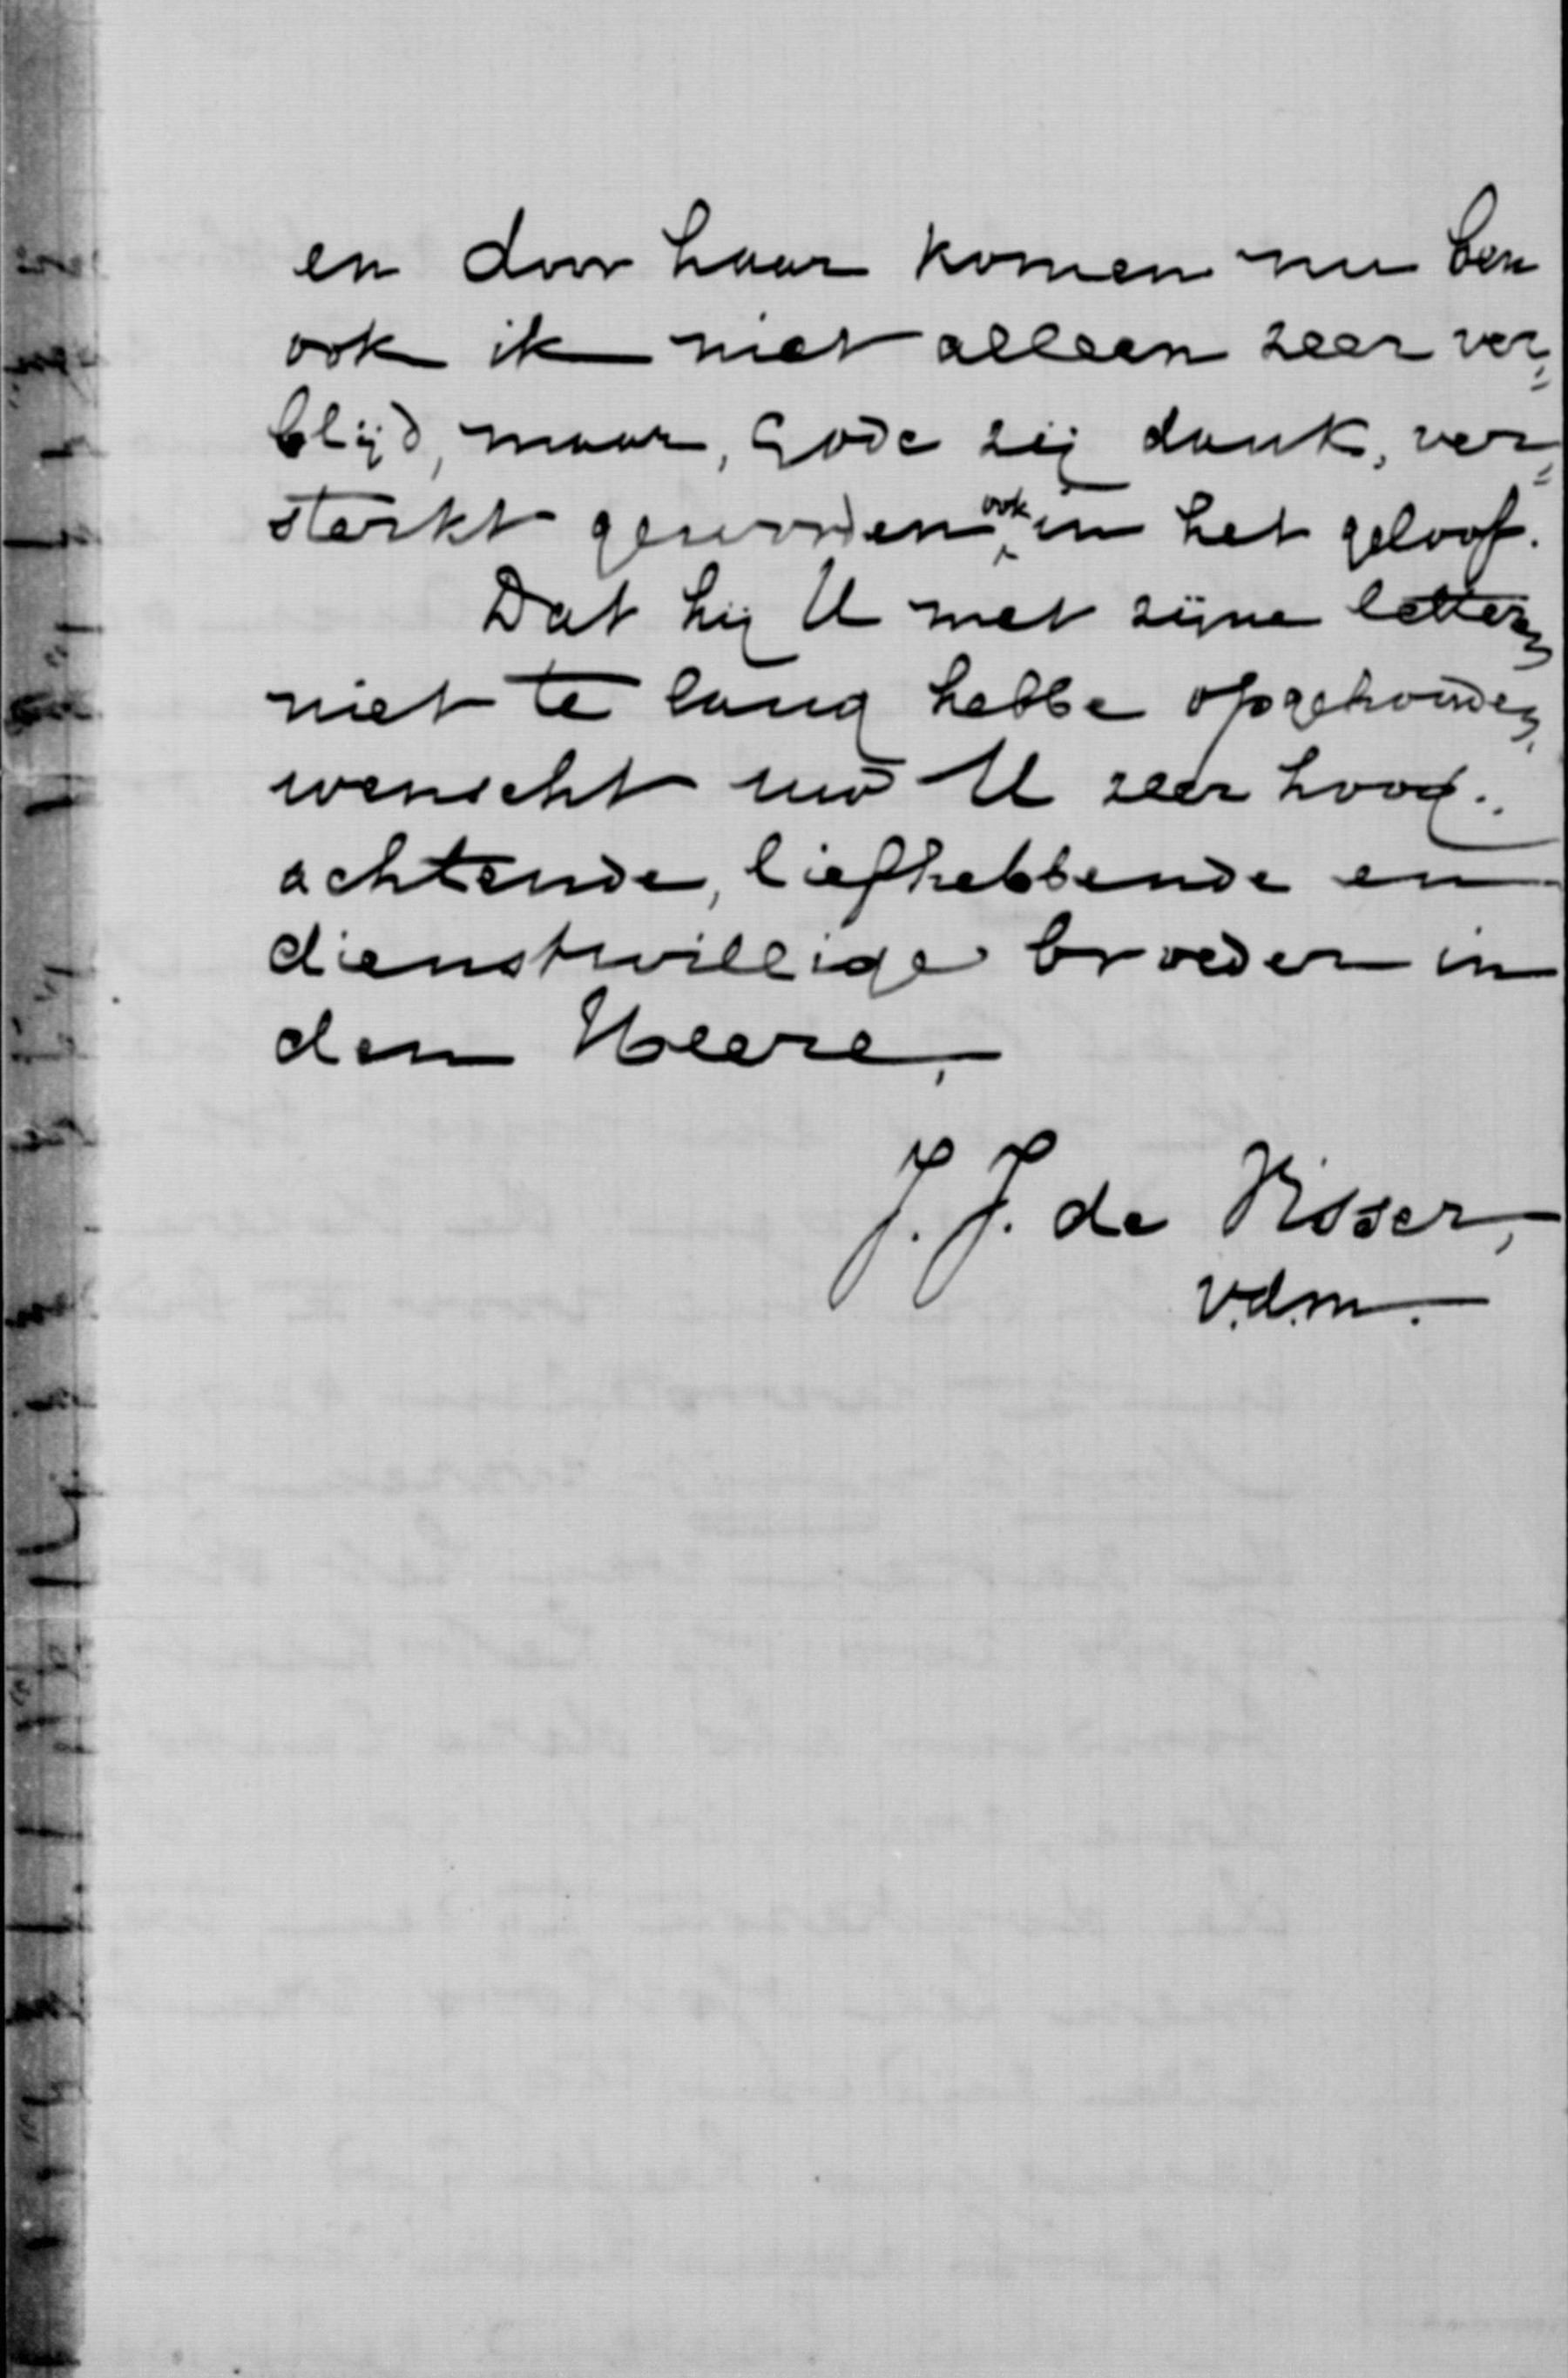 en door haar komen nu ben
ook ik niet alleen zeer ver=
blijd, maar, Gode zij dank, ver=
sterkt geworden ook in het geloof.
Dat hij U met zijne letteren
niet te lang hebbe opgehouden,
wenscht uw U zeer hoog-
achtende, liefhebbende en
dienstwillige broeder in
den Heere,
J. J. de Visser,
v.d.m.